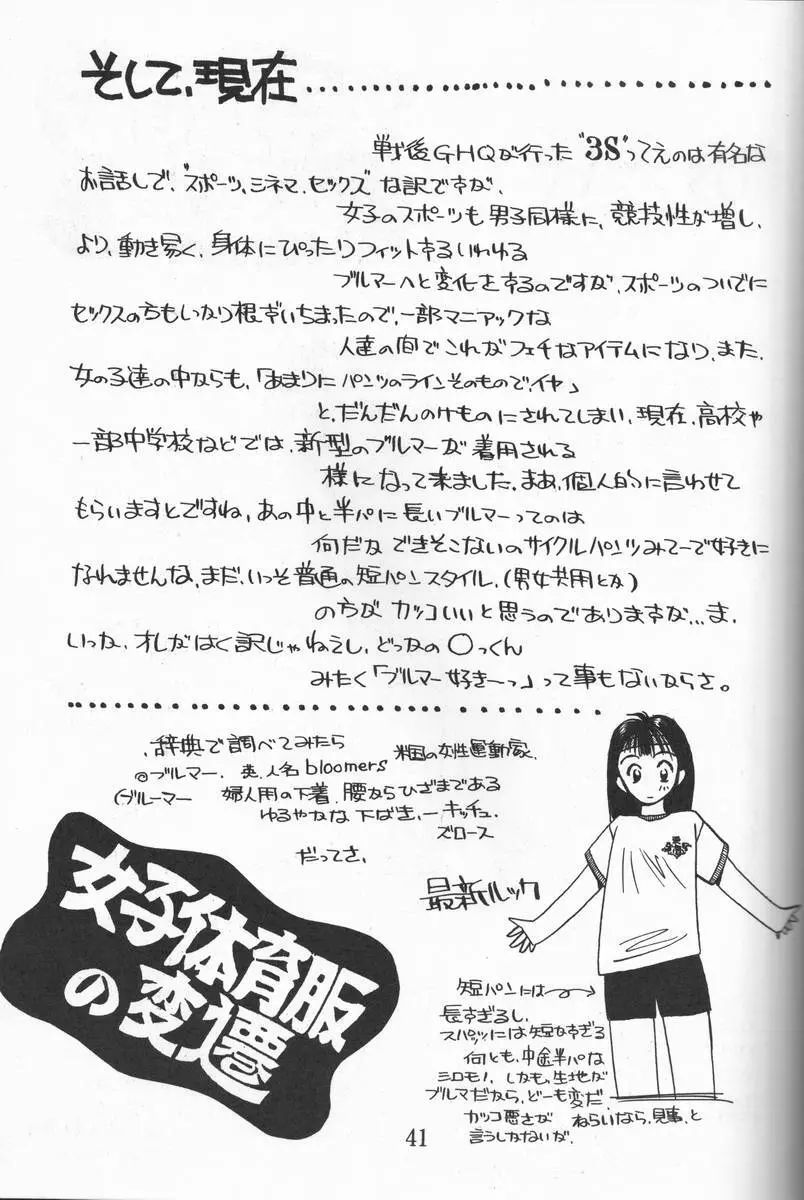 そして、現在
戦後GHQが行った"3S"ってえのは有名な
お話しで、"スポーツ、シネマ、セックス"な訳ですが、
女子のスポーツも男子同様に、競技性が増し、
より、動き易く、身体にぴったりフィットするいわゆる
ブルマーへと変化をするのですが、スポーツのついでに
セックスの方もしっかり根ずいちまったので、一部マニアックな
人達の間でこれがフェチなアイテムになり、また、
女の子達の中からも、「あまりにパンツのラインそのもので、イヤ」
と、だんだんのけものにされてしまい、現在、高校や
一部中学校などでは、新型のブルマーが着用される
様になって来ました。まあ、個人的に言わせて
もらいますとですね、あの中と半パに長いブルマーってのは
何だかできそこないのサイクルパンツみてーで好きに
なれませんな、まだ、いっそ普通の短パンスタイル、(男女共用とか)
の方がカッコいいと思うのでありますが…ま、
いっか、オレがはく訳じゃねえし、どっかの〇っくん
みたく「ブルマー好き〜っ」って事もないからさ。
辞典で調べてみたら
◎ブルマー、英、人名 bloomers 米国の女性運動家、
(ブルーマー 婦人用の下着、腰からひざまである
ゆるやかな下ばき、ーキッチュ、
ズロース
だってさ、
女子体育服
の変遷
最新ルック
短パンには
長すぎるし、
スパッツには短かすぎる
何とも、中途半パな
シロモノ、しかも、生地が
ブルマだから、どーも変だ、
カッコ悪さがねらいなら、見事、と
言うしかないが、
41